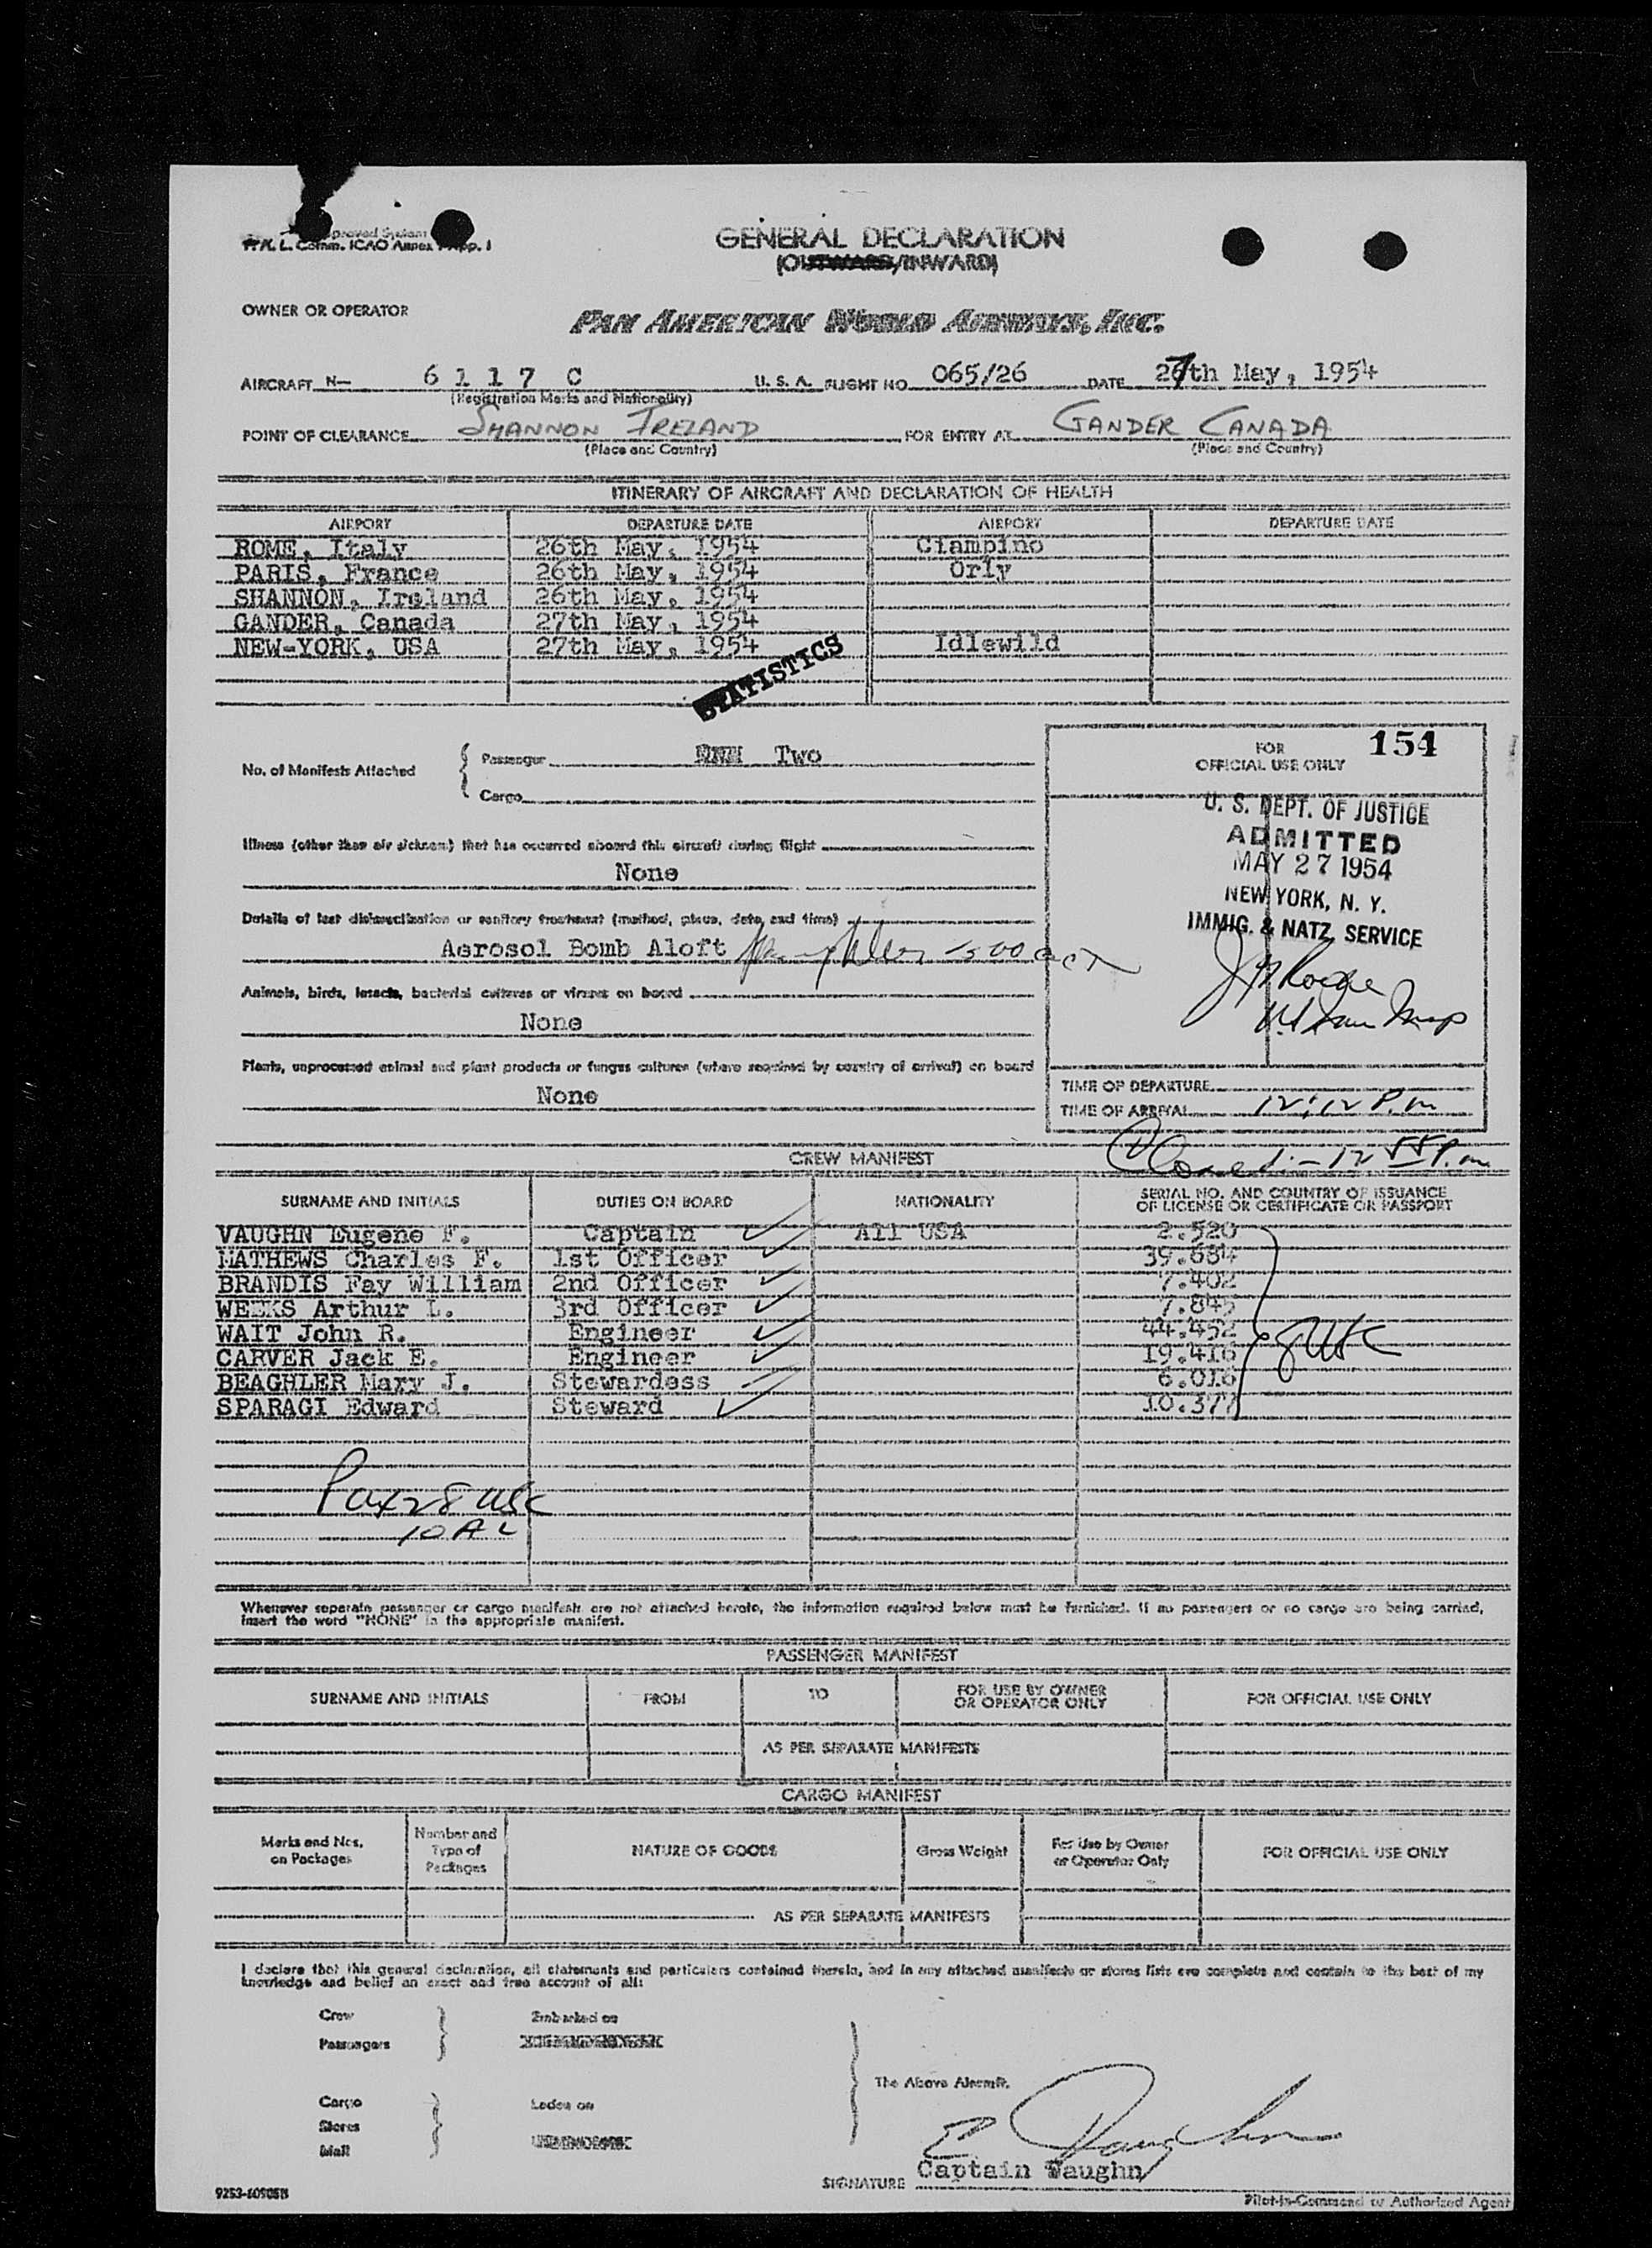 Comm. ICAO Annex
GENERAL DECLARATION
(OUTWARD/INWARD)
OWNER OR OPERATOR
PAN AMERICAN WORLD AIRWAYS, INC.
AIRCRAFT N— 6117 C U. S. A. FLIGHT NO. 065/26 DATE 27th May, 1954
(Registration Marks and Nationality)
POINT OF CLEARANCE SHANNON IRELAND FOR ENTRY AT GANDER CANADA
(Place and Country) (Place and Country)
ITINERARY OF AIRCRAFT AND DECLARATION OF HEALTH
AIRPORT DEPARTURE DATE AIRPORT DEPARTURE DATE
ROME, Italy 26th May, 1954 Ciampino
PARIS, France 26th May, 1954 Orly
SHANNON, Ireland 26th May, 1954
GANDER, Canada 27th May, 1954
NEW-YORK, USA 27th May, 1954 Idlewild
STATISTICS
No. of Manifests Attached
Passenger Two
Cargo
FOR OFFICIAL USE ONLY 154
U. S. DEPT. OF JUSTICE
ADMITTED
MAY 27 1954
NEW YORK, N. Y.
IMMIG. & NATZ. SERVICE
Illness (other than air sickness) that has occurred aboard this aircraft during flight
None
Details of last disinsectization or sanitary treatment (method, place, date, and time)
Aerosol Bomb Aloft
Animals, birds, insects, bacterial cultures or viruses on board
None
Plants, unprocessed animal and plant products or fungus cultures (where required by country of arrival) on board
None
TIME OF DEPARTURE
TIME OF ARRIVAL 12:12 P.m
Closed:- 12 55 P.m
CREW MANIFEST
SURNAME AND INITIALS DUTIES ON BOARD NATIONALITY SERIAL NO. AND COUNTRY OF ISSUANCE OF LICENSE OR CERTIFICATE OR PASSPORT
VAUGHN Eugene F. Captain All USA 2.520
MATHEWS Charles F. 1st Officer 39.684
BRANDIS Fay William 2nd Officer 7.402
WEEKS Arthur L. 3rd Officer 7.845
WAIT John R. Engineer 44.452
CARVER Jack E. Engineer 19.416
BEAGHLER Mary J. Stewardess 6.016
SPARAGI Edward Steward 10.377
8 USC
Pax 28 USC
10 AL
Whenever separate passenger or cargo manifests are not attached hereto, the information required below must be furnished. If no passengers or no cargo are being carried,
insert the word "NONE" in the appropriate manifest.
PASSENGER MANIFEST
SURNAME AND INITIALS FROM TO FOR USE BY OWNER OR OPERATOR ONLY FOR OFFICIAL USE ONLY
AS PER SEPARATE MANIFESTS
CARGO MANIFEST
Marks and Nos. on Packages Number and Type of Packages NATURE OF GOODS Gross Weight For Use by Owner or Operator Only FOR OFFICIAL USE ONLY
AS PER SEPARATE MANIFESTS
I declare that this general declaration, all statements and particulars contained therein, and in any attached manifests or stores lists are complete and contain to the best of my
knowledge and belief an exact and true account of all:
Crew
Passengers
Embarked on
The Above Aircraft.
Cargo
Stores
Mail
Laden on
E Vaughn
SIGNATURE Captain Vaughn
Pilot-in-Command or Authorized Agent